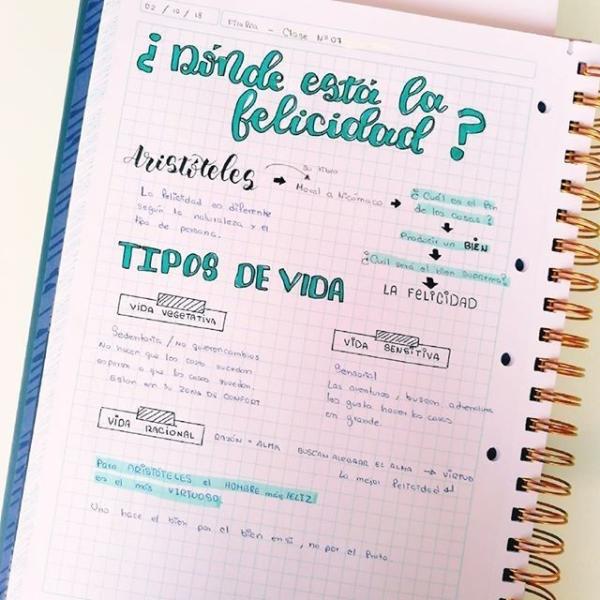 02 / 10 / 18
Clase Nº 07
¿Dónde está la
felicidad?
Aristóteles → Moral a Nicómaco → ¿Cuál es el fin
de las cosas?
La felicidad es diferente
según la naturaleza y el
tipo de persona.
Producir un BIEN
¿Cuál será el bien supremo?
LA FELICIDAD
TIPOS DE VIDA
VIDA VEGETATIVA
Sedentaria / No quieren cambios
No hacen que las cosas sucedan
esperan a que las cosas sucedan.
Están en su ZONA DE CONFORT
VIDA SENSITIVA
Sensorial
Las aventuras, buscan adrenalina
les gusta hacer las cosas
en grande.
VIDA RACIONAL
RAZÓN = ALMA BUSCAN ALEGRAR EL ALMA → VIRTUD
La mejor felicidad
Para ARISTÓTELES el HOMBRE más FELIZ
es el más VIRTUOSO
Uno hace el bien por el bien en sí, no por el fruto...